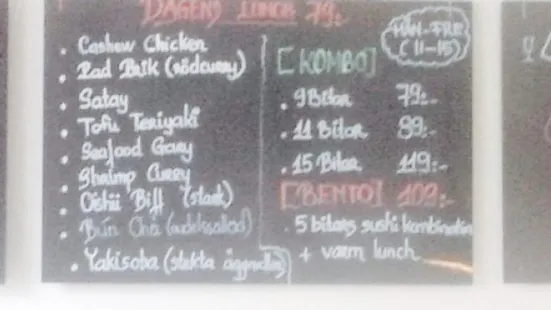 DAGENS LUNCH 79:-
• Cashew Chicken
• Pad Prik (rödcurry)
• Satay
• Tofu Teriyaki
• Seafood Gony
• Shrimp Curry
• Oshii Biff (stark)
• Bún Cha (nudelsallad)
• Yakisoba (stekta äggnudlar)
MÅN-FRE
(11-15)
[KOMBO]
• 9 Bitar 79:-
• 11 Bitar 89:-
• 15 Bitar 119:-
[BENTO] 109:-
• 5 bitars sushi kombination
+ varm lunch